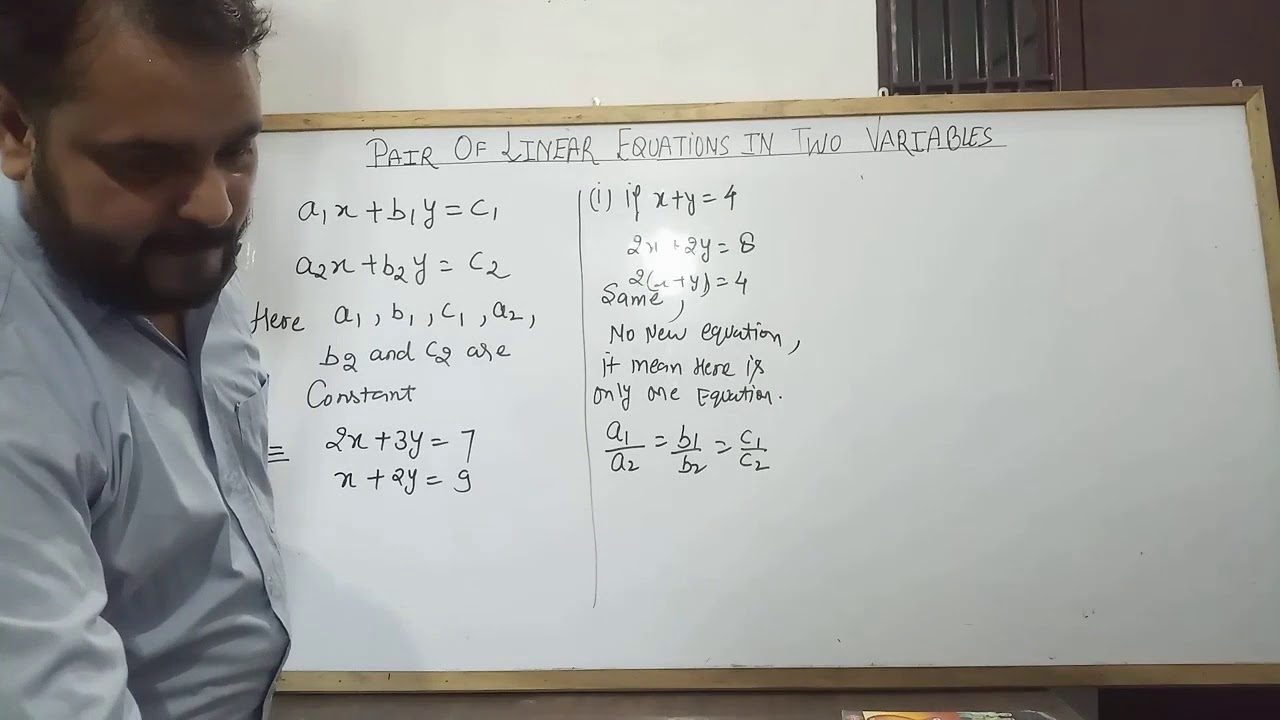 PAIR OF LINEAR EQUATIONS IN TWO VARIABLES
a₁x + b₁y = c₁
a₂x + b₂y = c₂
Here a₁, b₁, c₁, a₂,
b₂ and c₂ are
Constant
= 2x + 3y = 7
x + 2y = 9
(i) if x+y = 4
2x + 2y = 8
2(x+y) = 4
Same,
No New equation,
it mean Here is
only one Equation.
a₁/a₂ = b₁/b₂ = c₁/c₂